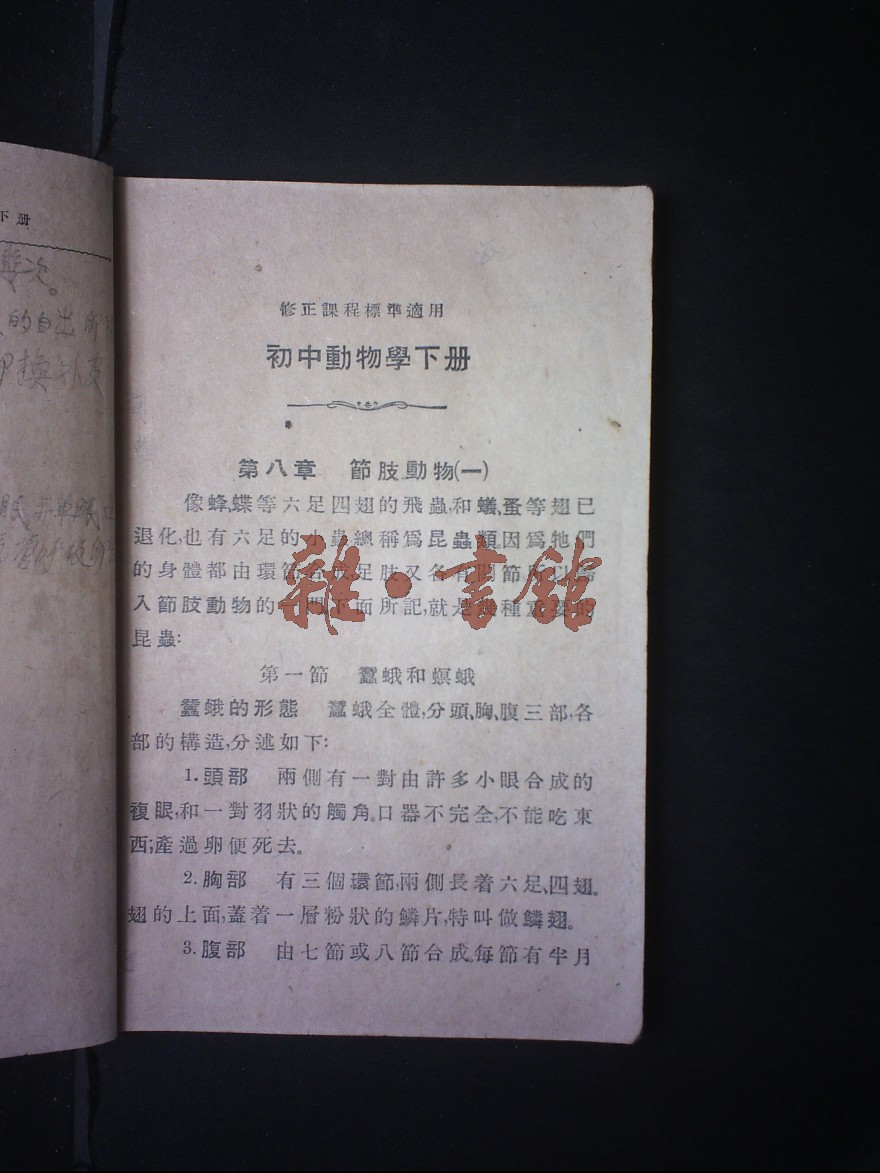 下册
修正課程標準適用
初中動物學下册
第八章 節肢動物(一)
像蜂、蝶等六足四翅的飛蟲,和蟻、蚤等翅已
退化,也有六足的小蟲,總稱爲昆蟲類。因爲牠們
的身體都由環節合成,足肢又各有關節,所以歸
入節肢動物的一門。下面所記,就是幾種重要的
昆蟲:
第一節 蠶蛾和螟蛾
蠶蛾的形態 蠶蛾全體,分頭、胸、腹三部,各
部的構造,分述如下:
1. 頭部 兩側有一對由許多小眼合成的
複眼,和一對羽狀的觸角。口器不完全,不能吃東
西;產過卵便死去。
2. 胸部 有三個環節,兩側長着六足、四翅。
翅的上面,蓋着一層粉狀的鱗片,特叫做鱗翅。
3. 腹部 由七節或八節合成。每節有半月
雜·書館